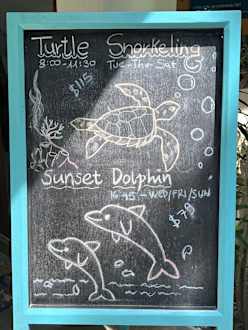 Turtle Snorkeling
8:00-11:30 Tue-Thu-Sat
$115
Sunset Dolphin
16:45 - WED/FRI/SUN
$79